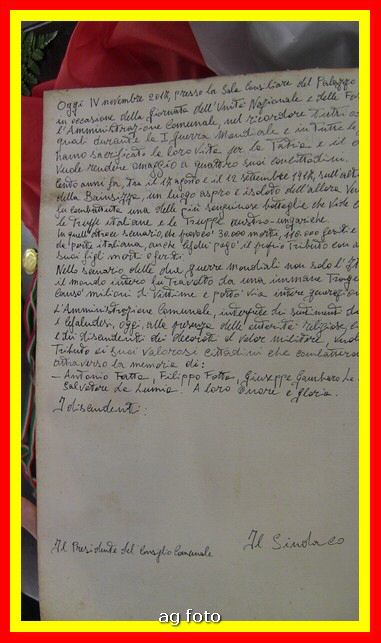 Oggi IV novembre 2017, presso la Sala Consiliare del Palazzo
in occasione della Giornata dell'Unità Nazionale e delle
l'Amministrazione Comunale, nel ricordare
quali durante la I Guerra Mondiale e in tutte le
hanno sacrificato la loro vita per la Patria e il
vuole rendere omaggio a quattro suoi concittadini.
Cento anni fa, tra il 17 agosto e il 12 settembre 1917, sull'
della Bainsizza, un luogo aspro e isolato dell'allora
fu combattuta una delle più sanguinose battaglie che vide
le truppe italiane e le truppe austro-ungariche.
In quell'atroce scenario, che provocò 30.000 morti, 110.000 feriti e
da parte italiana, anche Cefalù pagò il proprio tributo con
suoi figli morti o feriti.
Nello scenario delle due guerre mondiali non solo
il mondo intero fu travolto da una immane
causò milioni di vittime e portò via intere
L'Amministrazione Comunale, interprete dei sentimenti
Cefaludesi, oggi, alla presenza delle autorità religiose,
e dei discendenti dei decorati al valor militare,
tributo ai suoi valorosi cittadini che
attraverso la memoria di:
- Antonio Fatta, Filippo Fatta, Giuseppe Gambaro
Salvatore La Lumia. A loro Onore e Gloria.
I discendenti:
Il Presidente del Consiglio Comunale
Il Sindaco
ag foto